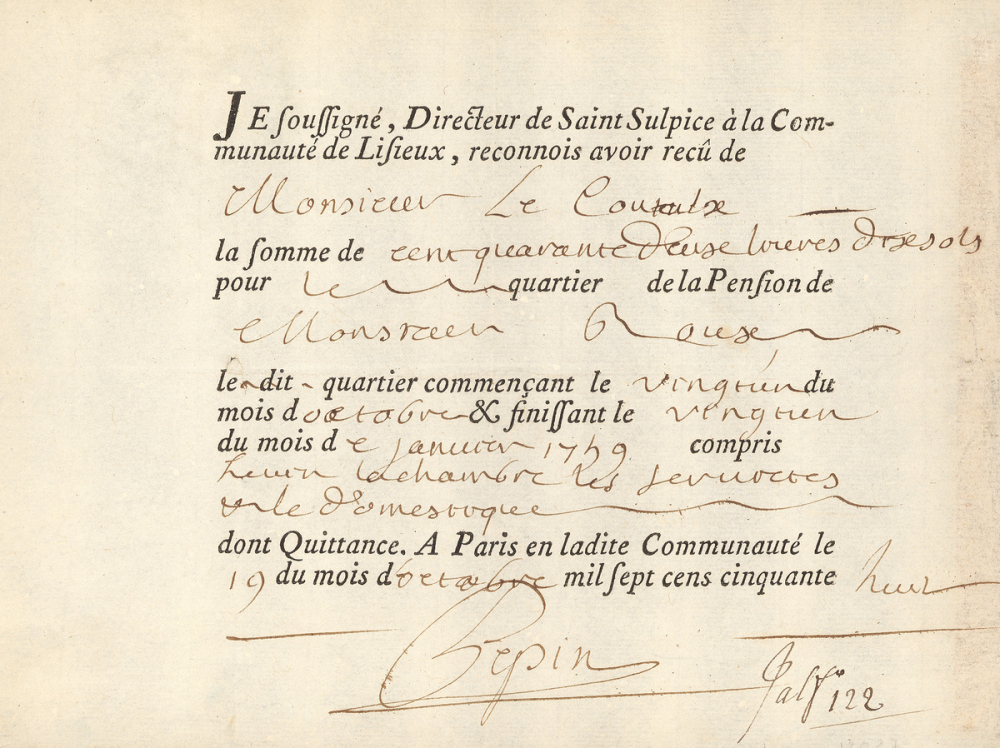 JE souſſigné, Directeur de Saint Sulpice à la Com-
munauté de Liſieux, reconnois avoir recû de
Monsieur Le Couteulx
la ſomme de cent quarante deuse livres dixe sols
pour le quartier de la Penſion de
Monsieur Rouse
le dit quartier commençant le vingtien du
mois d octobre & finiſſant le vingtien
du mois d e janvier 1759 compris
la chambre les serviettes
le domestique
dont Quittance. A Paris en ladite Communauté le
19 du mois d'octobre mil ſept cens cinquante huit
Pepin
122